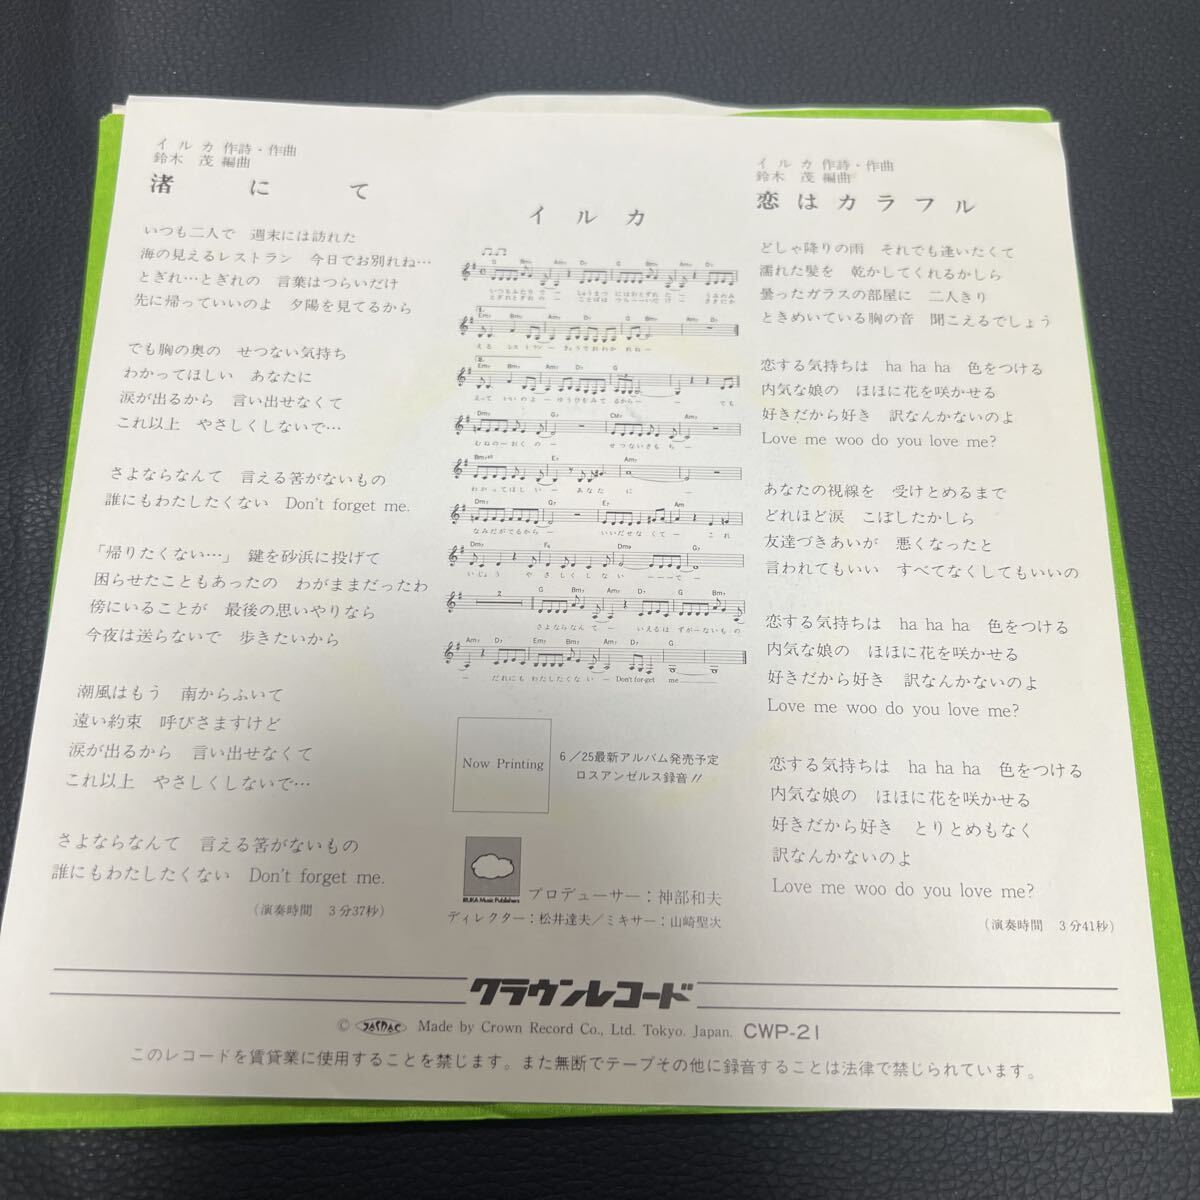 イルカ 作詩・作曲
鈴木 茂 編曲
渚にて
いつも二人で 週末には訪れた
海の見えるレストラン 今日でお別れね…
とぎれ…とぎれの 言葉はつらいだけ
先に帰っていいのよ 夕陽を見てるから
でも胸の奥の せつない気持ち
わかってほしい あなたに
涙が出るから 言い出せなくて
これ以上 やさしくしないで…
さよならなんて 言える筈がないもの
誰にもわたしたくない Don't forget me.
「帰りたくない…」 鍵を砂浜に投げて
困らせたこともあったの わがままだったわ
傍にいることが 最後の思いやりなら
今夜は送らないで 歩きたいから
潮風はもう 南からふいて
遠い約束 呼びさますけど
涙が出るから 言い出せなくて
これ以上 やさしくしないで…
さよならなんて 言える筈がないもの
誰にもわたしたくない Don't forget me.
(演奏時間 3分37秒)
イルカ
Now Printing
6/25最新アルバム発売予定
ロスアンゼルス録音!!
IRUKA Music Publishers
プロデューサー：神部和夫
ディレクター：松井達夫／ミキサー：山崎聖次
イルカ 作詩・作曲
鈴木 茂 編曲
恋はカラフル
どしゃ降りの雨 それでも逢いたくて
濡れた髪を 乾かしてくれるかしら
曇ったガラスの部屋に 二人きり
ときめいている胸の音 聞こえるでしょう
恋する気持ちは ha ha ha 色をつける
内気な娘の ほほに花を咲かせる
好きだから好き 訳なんかないのよ
Love me woo do you love me?
あなたの視線を 受けとめるまで
どれほど涙 こぼしたかしら
友達づきあいが 悪くなったと
言われてもいい すべてなくしてもいいの
恋する気持ちは ha ha ha 色をつける
内気な娘の ほほに花を咲かせる
好きだから好き 訳なんかないのよ
Love me woo do you love me?
恋する気持ちは ha ha ha 色をつける
内気な娘の ほほに花を咲かせる
好きだから好き とりとめもなく
訳なんかないのよ
Love me woo do you love me?
(演奏時間 3分41秒)
クラウンレコード
© JASRAC Made by Crown Record Co., Ltd. Tokyo. Japan. CWP-21
このレコードを賃貸業に使用することを禁じます。また無断でテープその他に録音することは法律で禁じられています。